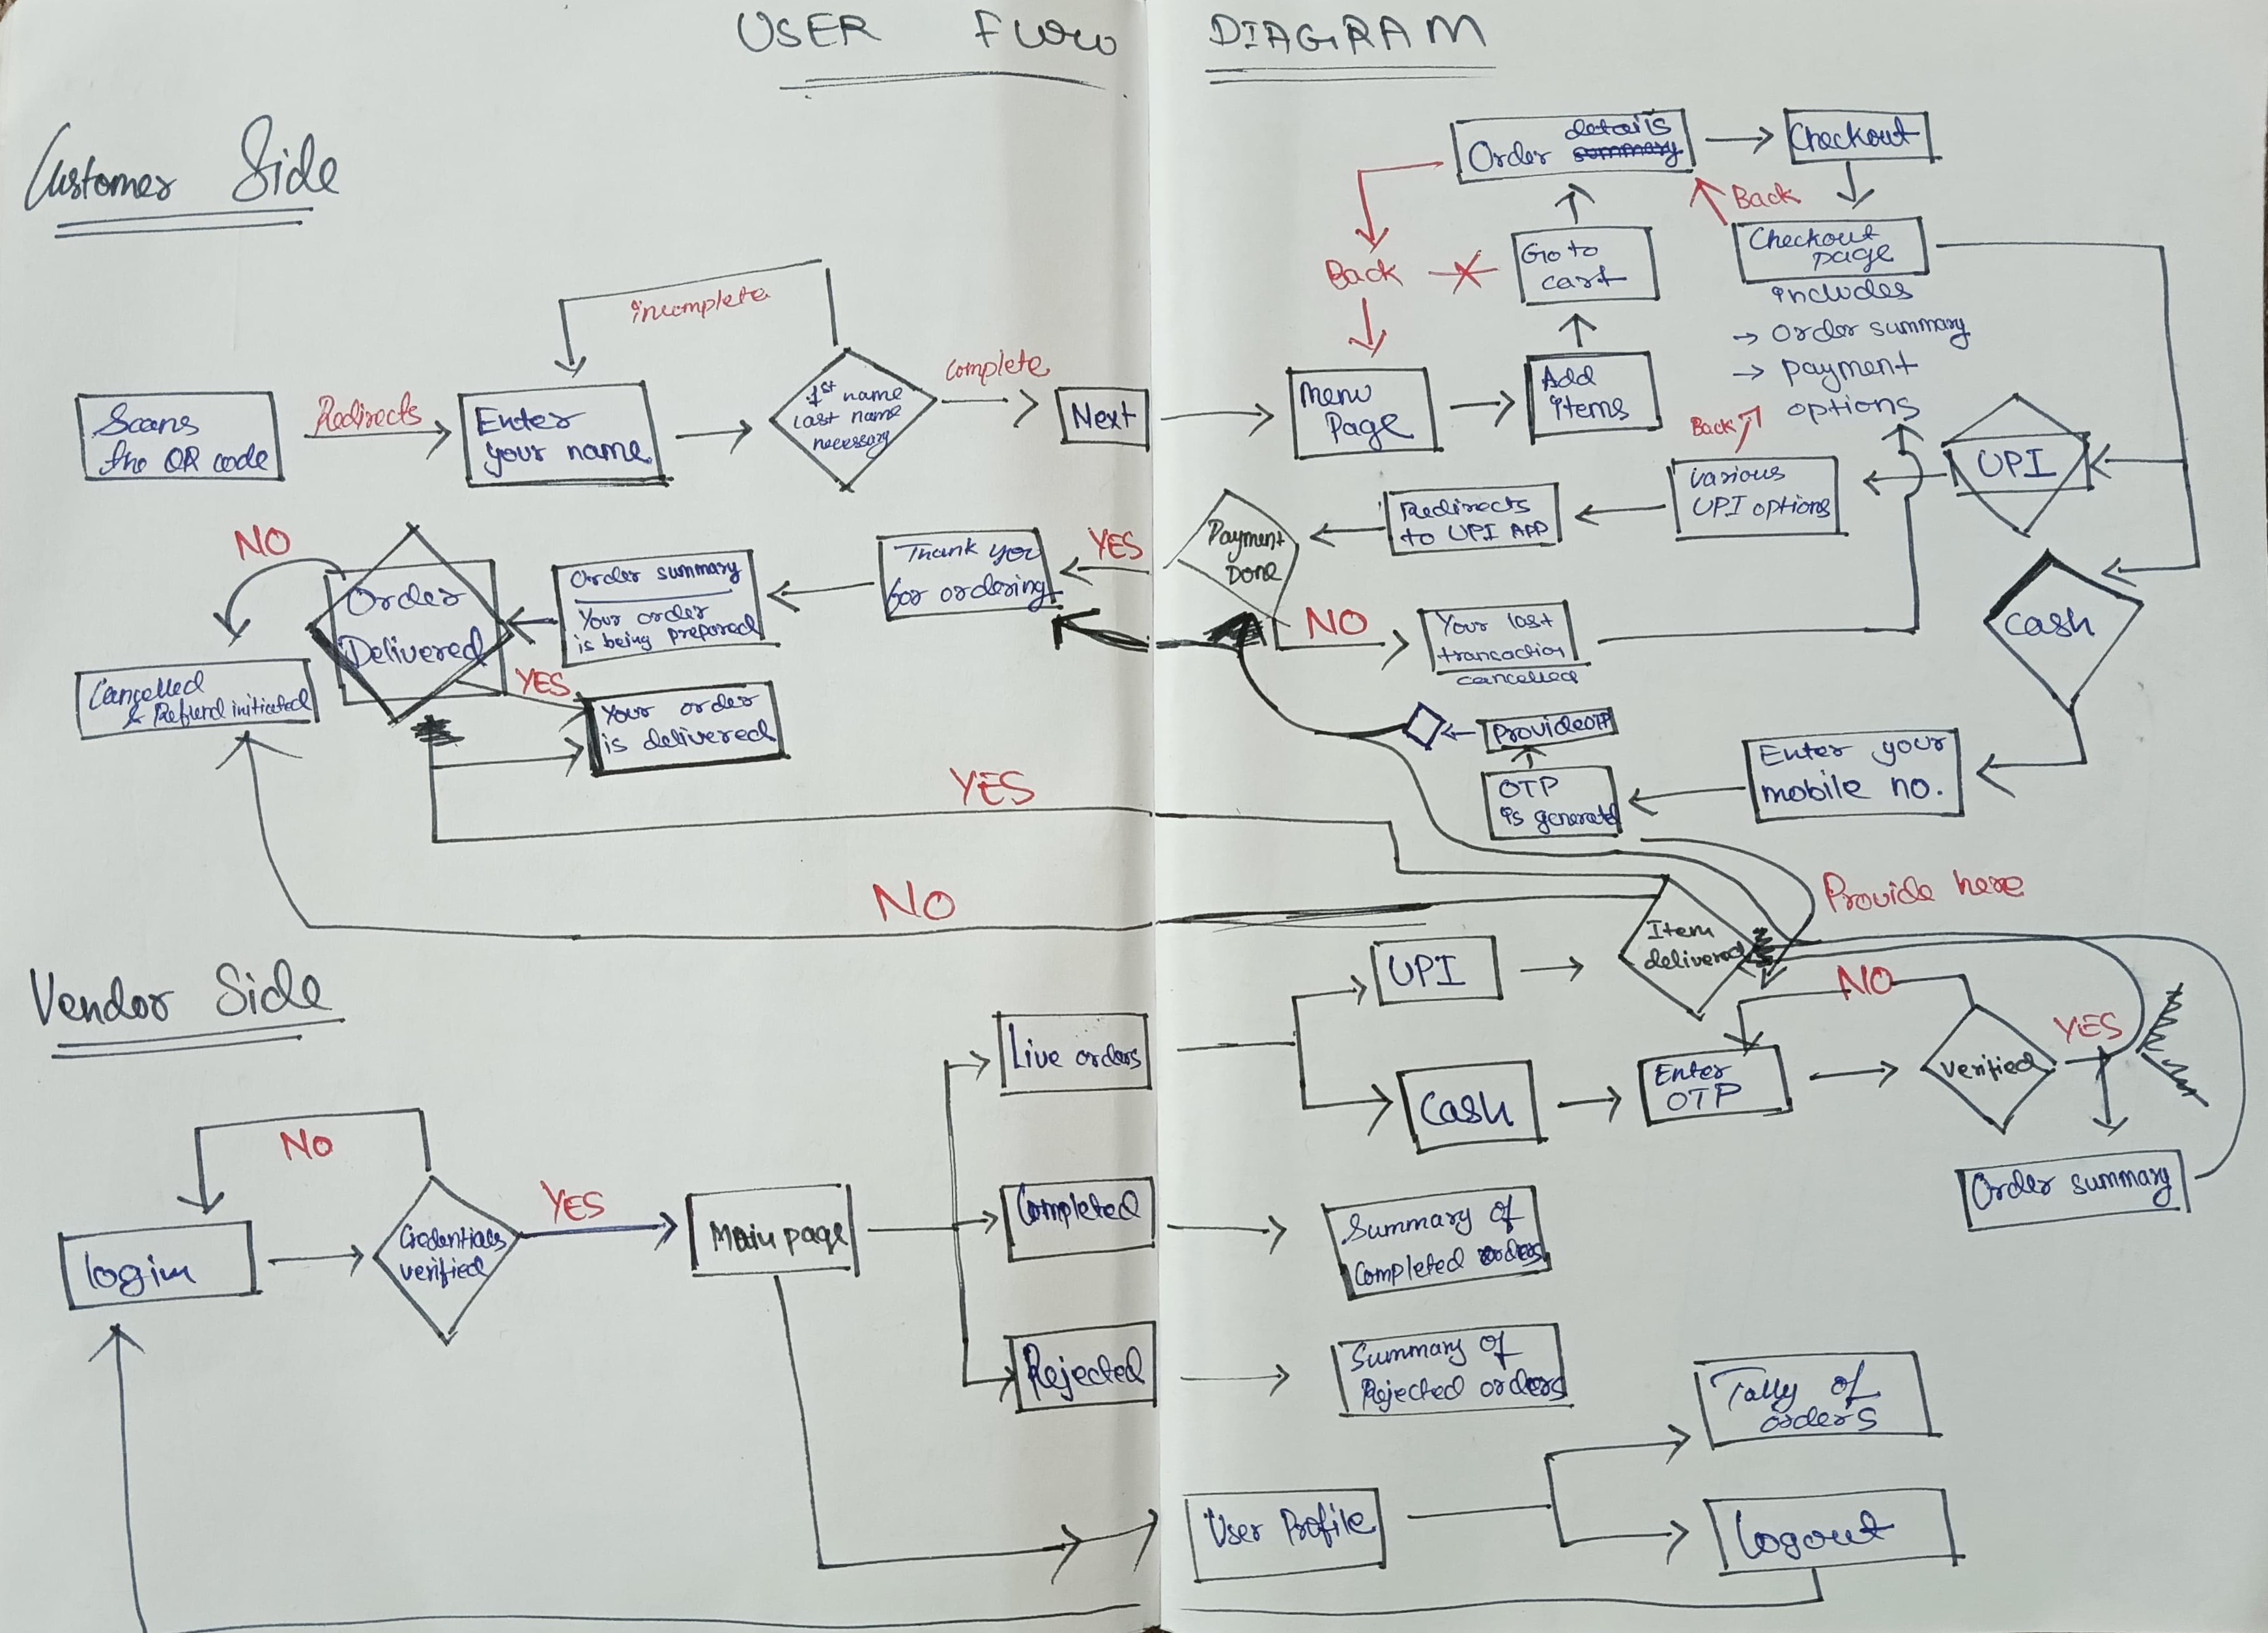 USER FLOW DIAGRAM
Customer Side
Scans
the QR code
Redirects
Enter
your name
incomplete
1st name
last name
necessary
Complete
Next
Menu
Page
Add
Items
Go to
cart
Back
Order details
summary
Checkout
Back
Checkout
page
includes
→ Order summary
→ payment
options
UPI
Back
various
UPI options
Redirects
to UPI APP
Payment
Done
YES
NO
Your last
transaction
cancelled
Thank you
for ordering
Order summary
Your order
is being prepared
Order
Delivered
NO
Cancelled
& Refund initiated
YES
Your order
is delivered
Cash
Enter your
mobile no.
OTP
is generated
Provide OTP
YES
NO
Provide here
Vendor Side
login
NO
Credentials
verified
YES
Main page
Live orders
UPI
Item
delivered
Cash
Enter
OTP
NO
Verified
YES
Order summary
Completed
Summary of
Completed orders
Rejected
Summary of
Rejected orders
User Profile
Tally of
orders
Logout